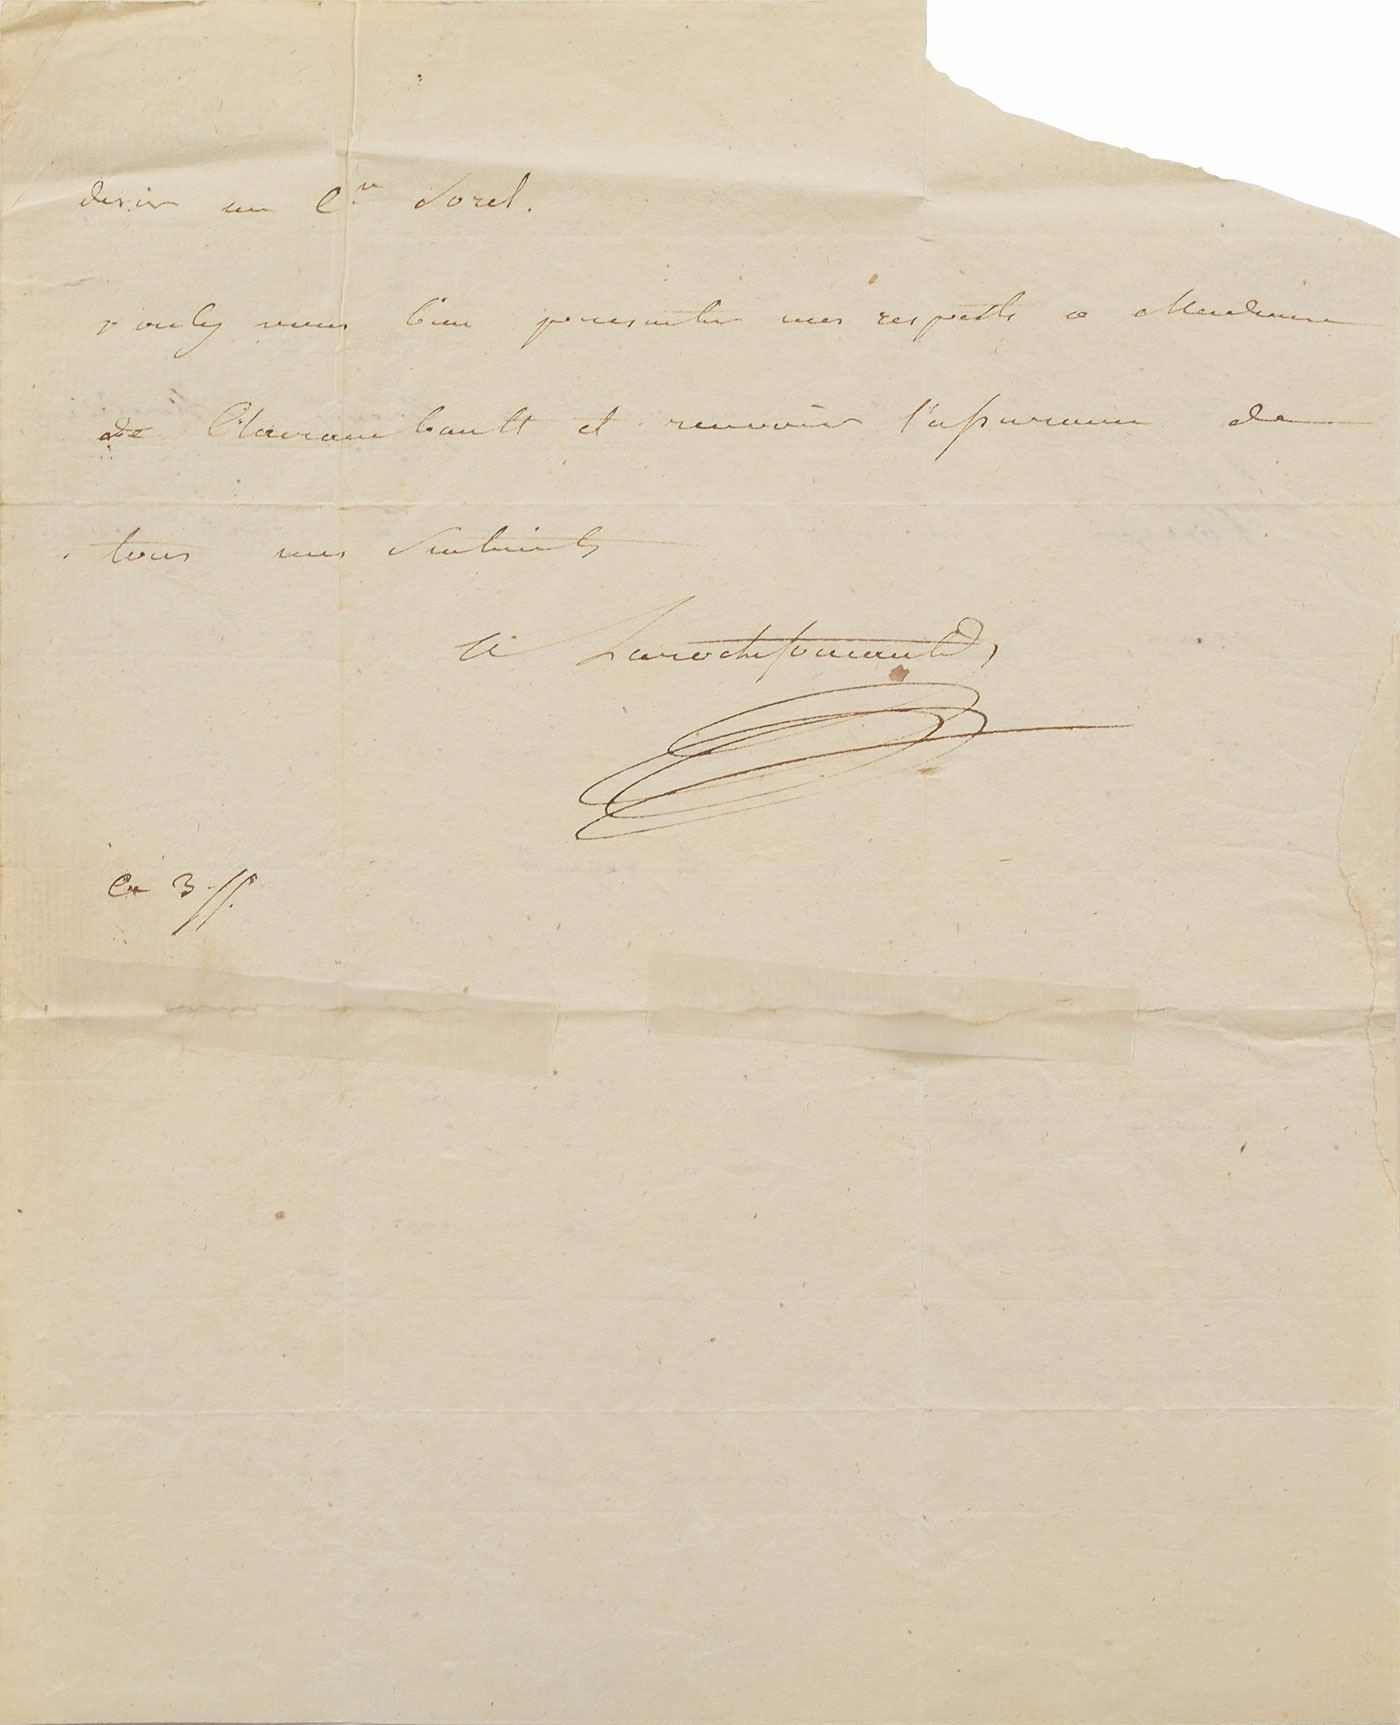 desir au C.en Sorel.
voulez vous bien presenter mes respects a Madame
de Clairambault et recevoir l'assurance de
tous mes sentiments
Larochefoucauld
Ce 3